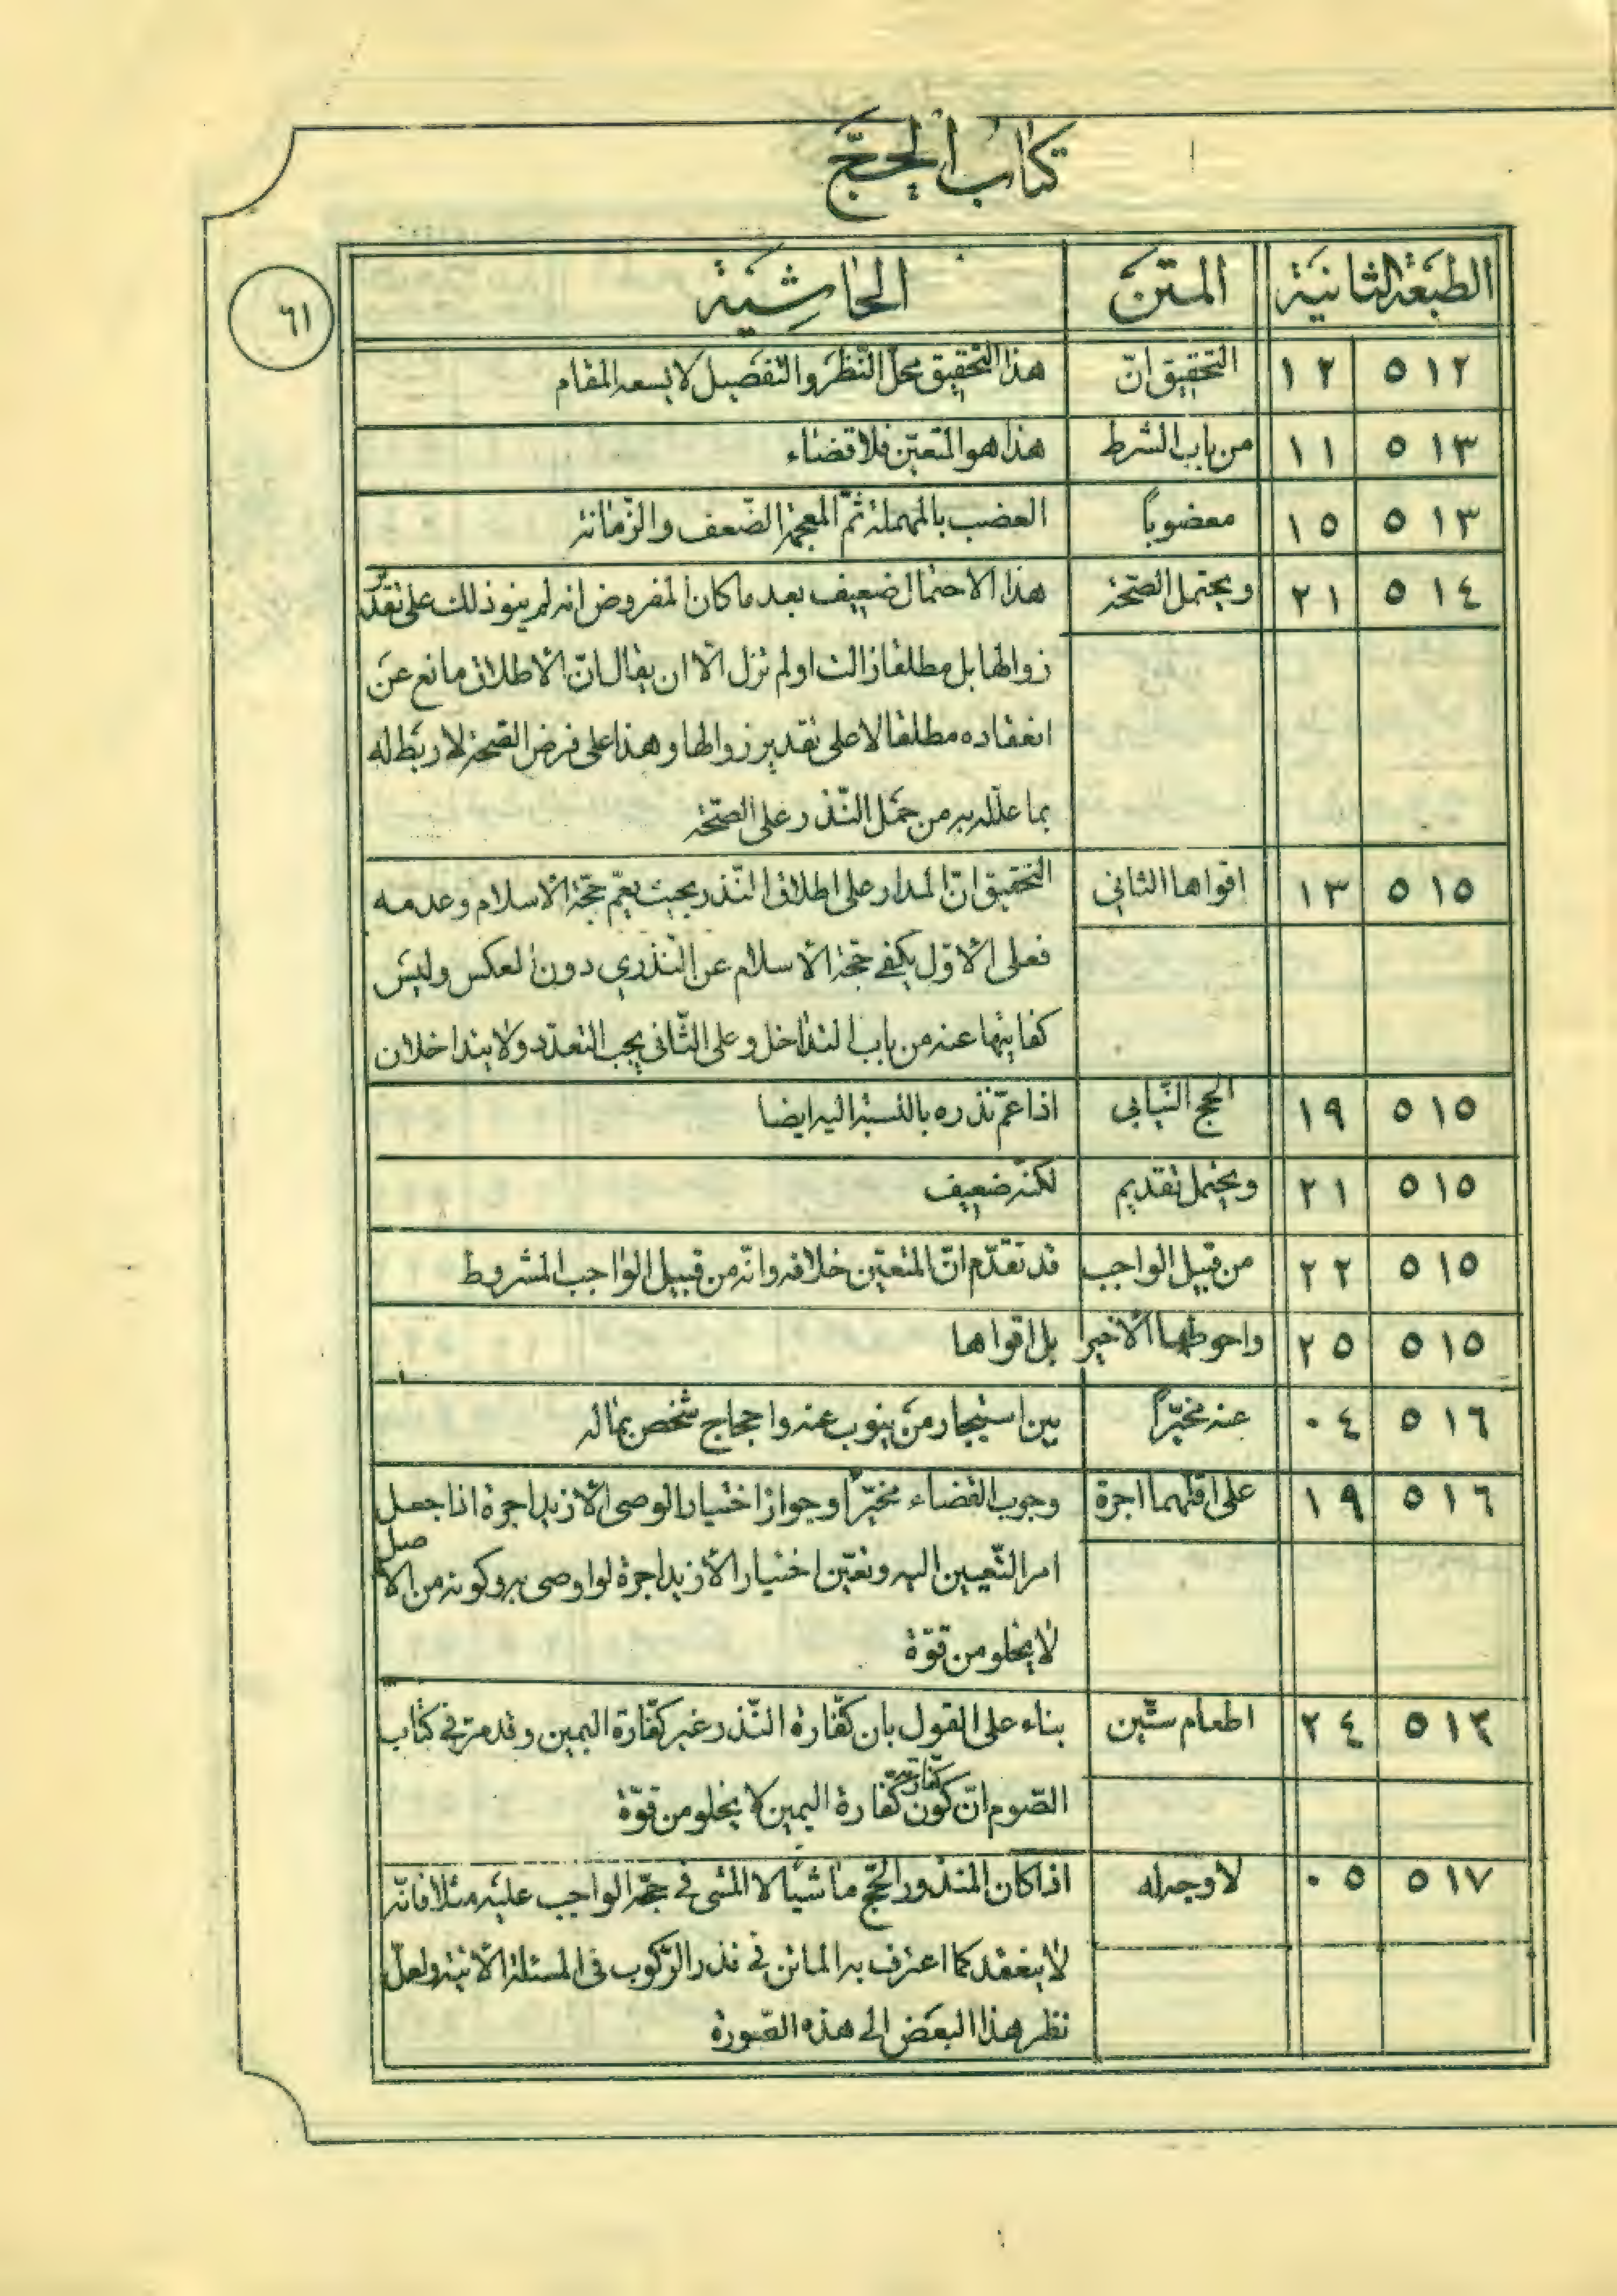 كتاب الحجّ
٦١
الطبعة الثانية المتن الحاشية
٥١٢ ١٢ التحقيق انّ هذا التحقيق محلّ النّظر والتّفصيل لا يسعه المقام
٥١٣ ١١ من باب الشرط هذا هو المتعيّن فلا قضاء
٥١٣ ١٥ معضوباً العضب بالمهملة ثمّ المعجمة الضّعف والزّمانة
٥١٤ ٢١ ويحتمل الصّحّة هذا الاحتمال ضعيف بعد ما كان المفروض انه لم ينوذلك على تقدير
زوالها بل مطلقا زالت او لم تزل الّا ان يقال انّ الاطلاق مانع عن
انعقاده مطلقا لا على تقدير زوالها وهذا على فرض الصّحة لا ربط له
بما علّله به من حمل النّذر على الصّحّة
٥١٥ ١٣ اقواها الثاني التحقيق انّ المدار على اطلاق النّذر بحيث يعمّ حجّة الاسلام وعدمه
فعلى الاوّل يكفى حجّة الاسلام عن النّذري دون العكس وليس
كفايتها عنه من باب التداخل وعلى الثّانى يجب التعدّد ولا يتداخلان
٥١٥ ١٩ الحج النّيابي اذا عمّ نذره بالنسبة اليه ايضا
٥١٥ ٢١ ويحتمل تقديم لكنّه ضعيف
٥١٥ ٢٢ من قبيل الواجب قد تقدّم انّ المتعيّن خلافه وانّه من قبيل الواجب المشروط
٥١٥ ٢٥ واحوطها الاخير بل اقواها
٥١٦ ٠٤ عنه مخيّراً بين استيجار من ينوب عنه واحجاج شخص بماله
٥١٦ ١٩ على اقلّهما اجرة وجوب القضاء مخيّراً وجواز اختيار الوصى الازيد اجرة اذا جعل
امر التّعيين اليه وتعيّن اختيار الازيد اجرة لو اوصى به وكونه من الاصل
لا يخلو من قوّة
٥١٢ ٢٤ اطعام ستّين بناء على القول بان كفّارة النّذر غير كفّارة اليمين وقد مرّ في كتاب
الصّوم انّ كون كفّارته كفّارة اليمين لا يخلو من قوّة
٥١٧ ٠٥ لا وجه له اذا كان المنذور الحجّ ماشياً لا المشى في حجّه الواجب عليه مثلا فانّه
لا ينعقد كما اعترف به الماتن في نذر الرّكوب في المسئلة الآتية ولعلّ
نظر هذا البعض الى هذه الصّورة